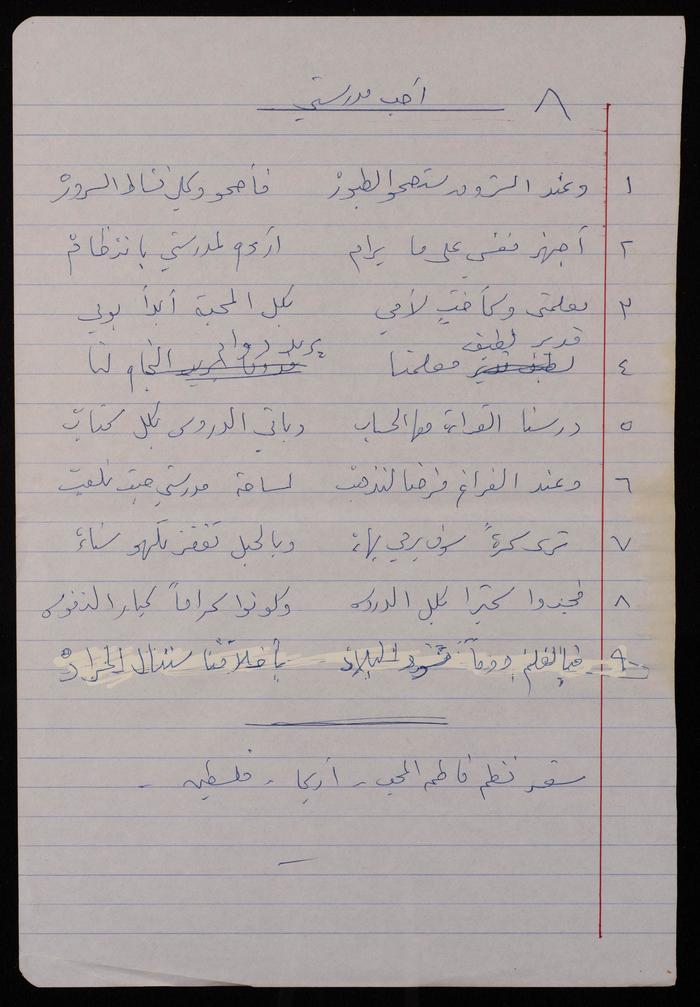 ٨ أحب مدرستي
١ وعند الشروق ستصحو الطيور فأصحو وكلي نشاط السرور
٢ أجهز نفسي على ما يرام أروح لمدرستي بانتظام
٣ معلمتي وكأختٍ لأمي بكل المحبة أبدأ يومي
قدير لطيف يريد دوام
٤ معلمنا النجاح لنا
٥ درسنا القراءة مع الحساب وباقي الدروس بكل كتاب
٦ وعند الفراغ فرضا لنذهب لساحة مدرستي حيث نلعب
٧ ترى كرةً سوف يرمي بهاء وبالحبل تقفز تلهو سناء
٨ فجدوا كثيرا بكل الدروس وكونوا كراماً كبار النفوس
٩ فبالعلم دوماً نسود البلاد بأخلاقنا سننال المراد
شعر نظم فاطمه المحب - أريحا - فلسطين -